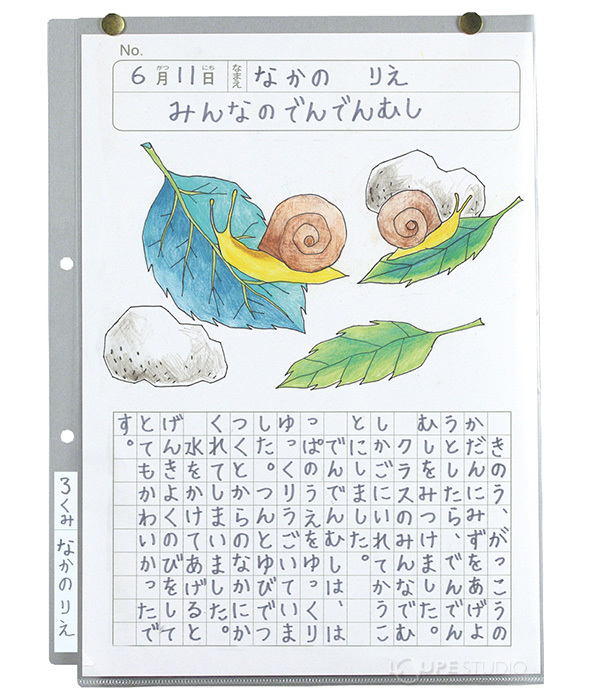 No.
6月11日 なまえ なかの りえ
がつ にち
みんなのでんでんむし
きのう、がっこうの
かだんにみずをあげよ
うとしたら、でんでん
むしをみつけました。
クラスのみんなでむ
しかごにいれてかうこ
とにしました。
でんでんむしは、は
っぱのうえをゆっくり
ゆっくりうごいていま
した。つんとゆびでつ
つくとからのなかにか
くれてしまいました。
水をかけてあげると
げんきよくのびをして
とてもかわいかったで
す。
3くみ なかの りえ
LOUPE STUDIO